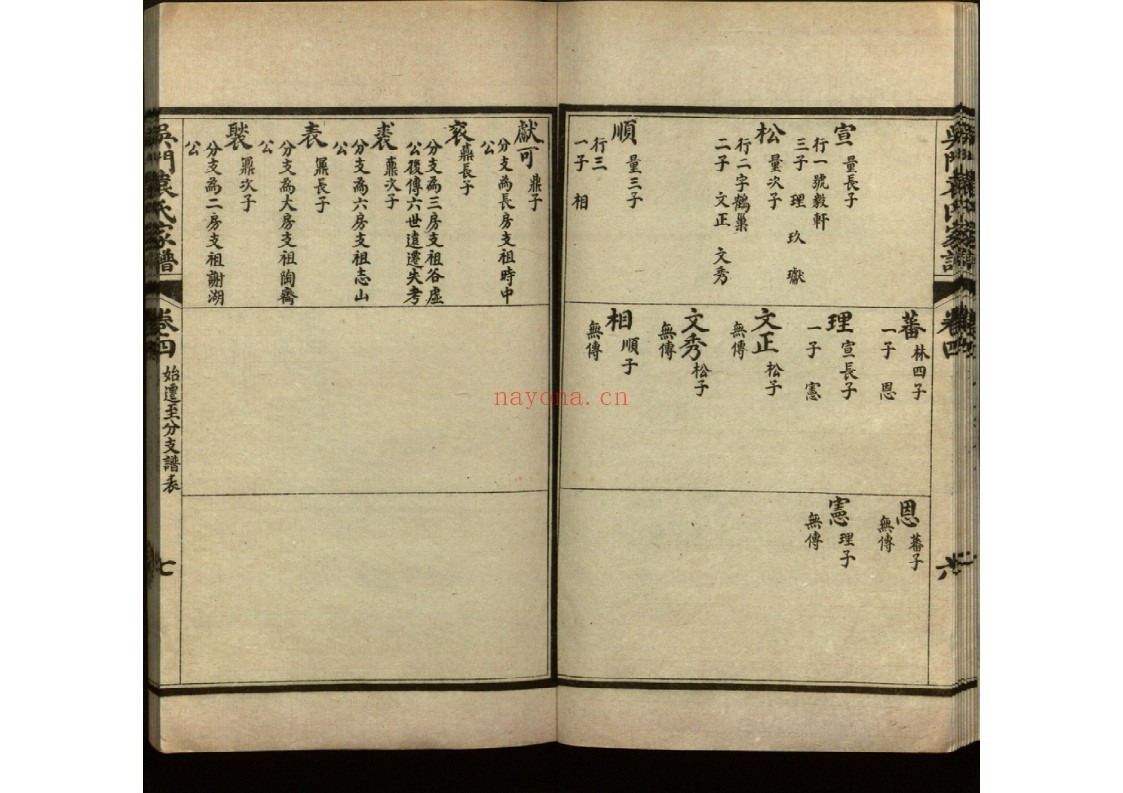 吳門袁氏家譜
卷四
六
宣
量長子
行一號毅軒
三子 理 玖 獻
松
量次子
行二字鶴巢
二子 文正 文秀
順
量三子
行三
一子 相
蕃
林四子
一子 恩
理
宣長子
一子 憲
文正
松子
無傳
文秀
松子
無傳
相
順子
無傳
恩
蕃子
無傳
憲
理子
無傳
獻可
鼎子
分支為長房支祖時中
公
袞
鼒長子
分支為三房支祖谷虛
公後傳六世遠遷失考
裘
鼒次子
分支為六房支祖志山
公
表
鼏長子
分支為大房支祖陶齋
公
褧
鼏次子
分支為二房支祖謝湖
公
吳門袁氏家譜
卷四
始遷至分支譜表
七
nayona.cn